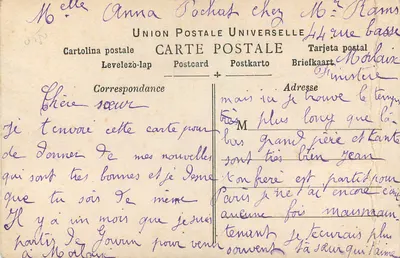 Melle Anna Pochat chez Mr Rams
44 rue basse
Morlaix
Finistère
UNION POSTALE UNIVERSELLE
Cartolina postale CARTE POSTALE Tarjeta postal
Levelezö-lap Postcard Postkarto Briefkaart
Correspondance
Adresse
M
Chère sœur
Je t'envoie cette carte pour
de donner de mes nouvelles
qui sont très bonnes et je désire
que tu sois de même
Il y a un mois que je suis
partis de Gourin pour venir
à Morlaix
mais ici je trouve le temps
très plus long que là
bas Grand père et tante
sont très bien Jean
ton frère est partit pour
Paris je ne ai encore
aucune fois maintenant
tenant je t'écrirais plus
souvent ta sœur qui t'aime